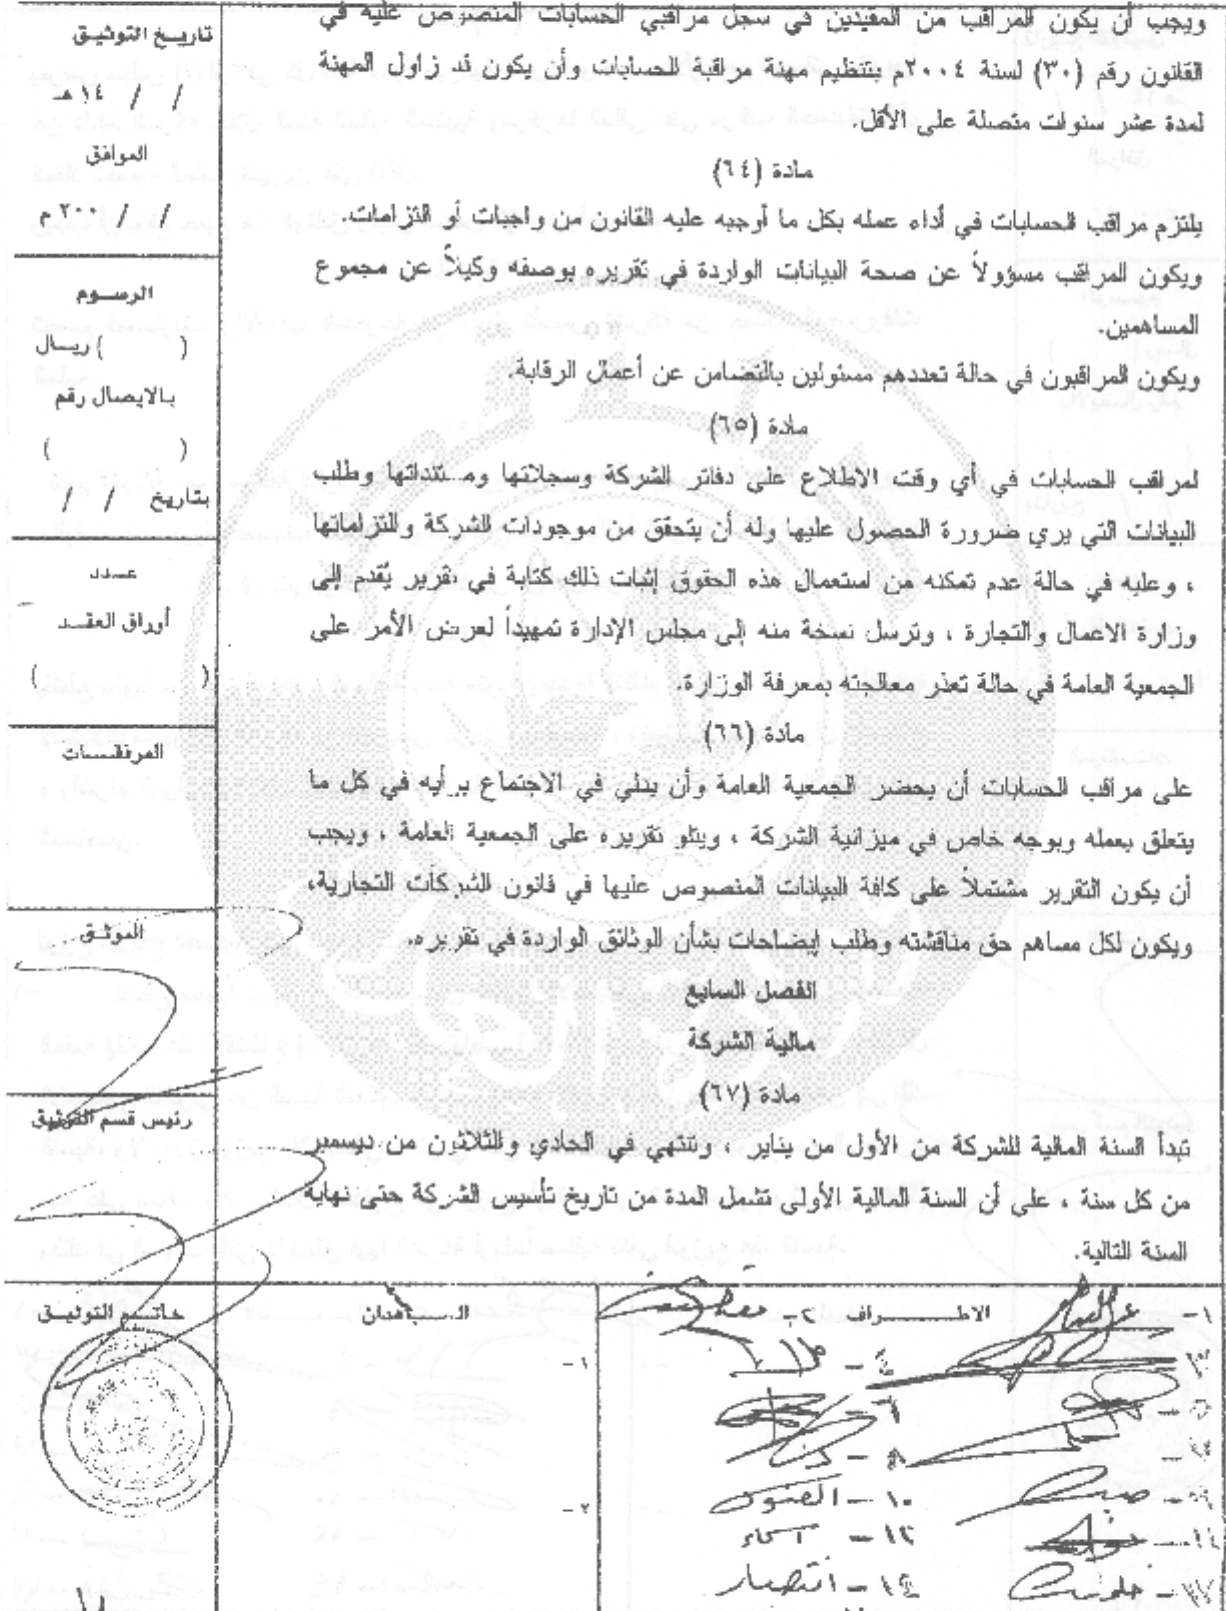 ويجب أن يكون المراقب من المقيدين في سجل مراقبي الحسابات المنصوص عليه في
القانون رقم (٣٠) لسنة ٢٠٠٤م بتنظيم مهنة مراقبة الحسابات وأن يكون قد زاول المهنة
لمدة عشر سنوات متصلة على الأقل.
مادة (٦٤)
يلتزم مراقب الحسابات في أداء عمله بكل ما أوجبه عليه القانون من واجبات أو التزامات.
ويكون المراقب مسؤولاً عن صحة البيانات الواردة في تقريره بوصفه وكيلاً عن مجموع
المساهمين.
ويكون المراقبون في حالة تعددهم مسئولين بالتضامن عن أعمال الرقابة.
مادة (٦٥)
لمراقب الحسابات في أي وقت الاطلاع على دفاتر الشركة وسجلاتها ومستنداتها وطلب
البيانات التي يري ضرورة الحصول عليها وله أن يتحقق من موجودات الشركة والتزاماتها
، وعليه في حالة عدم تمكنه من استعمال هذه الحقوق إثبات ذلك كتابة في تقرير يُقدم إلى
وزارة الاعمال والتجارة ، وترسل نسخة منه إلى مجلس الإدارة تمهيداً لعرض الأمر على
الجمعية العامة في حالة تعذر معالجته بمعرفة الوزارة.
مادة (٦٦)
على مراقب الحسابات أن يحضر الجمعية العامة وأن يدلي في الاجتماع برأيه في كل ما
يتعلق بعمله وبوجه خاص في ميزانية الشركة ، ويتلو تقريره على الجمعية العامة ، ويجب
أن يكون التقرير مشتملاً على كافة البيانات المنصوص عليها في قانون الشركات التجارية،
ويكون لكل مساهم حق مناقشته وطلب إيضاحات بشأن الوثائق الواردة في تقريره.
الفصل السابع
مالية الشركة
مادة (٦٧)
تبدأ السنة المالية للشركة من الأول من يناير ، وتنتهي في الحادي والثلاثون من ديسمبر
من كل سنة ، على أن السنة المالية الأولى تشمل المدة من تاريخ تأسيس الشركة حتى نهاية
السنة التالية.
تاريخ التوثيق
/ / ١٤هـ
الموافق
/ / ٢٠٠م
الرسوم
( ) ريال
بالايصال رقم
( )
بتاريخ / /
عدد
أوراق العقد
( )
المرفقات
الموثق
رئيس قسم التوثيق
خاتم التوثيق
الشاهدان
١-
٢-
الاطراف
١-
٢-
٤-
٦-
٨-
١٠-
١٢- اسماء
١٤- انتصار